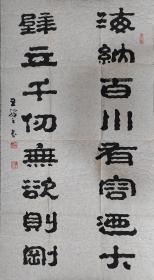 海纳百川有容乃大
壁立千仞無欲則剛